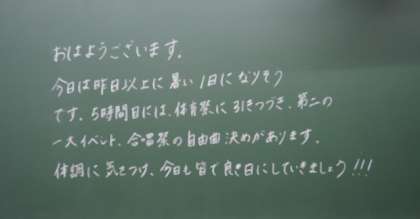 おはようございます。
今日は昨日以上に暑い1日になりそう
です。5時間目には、体育祭に引きつづき、第二の
一大イベント、合唱祭の自由曲決めがあります。
体調に気をつけ、今日も皆で良き日にしていきましょう!!!